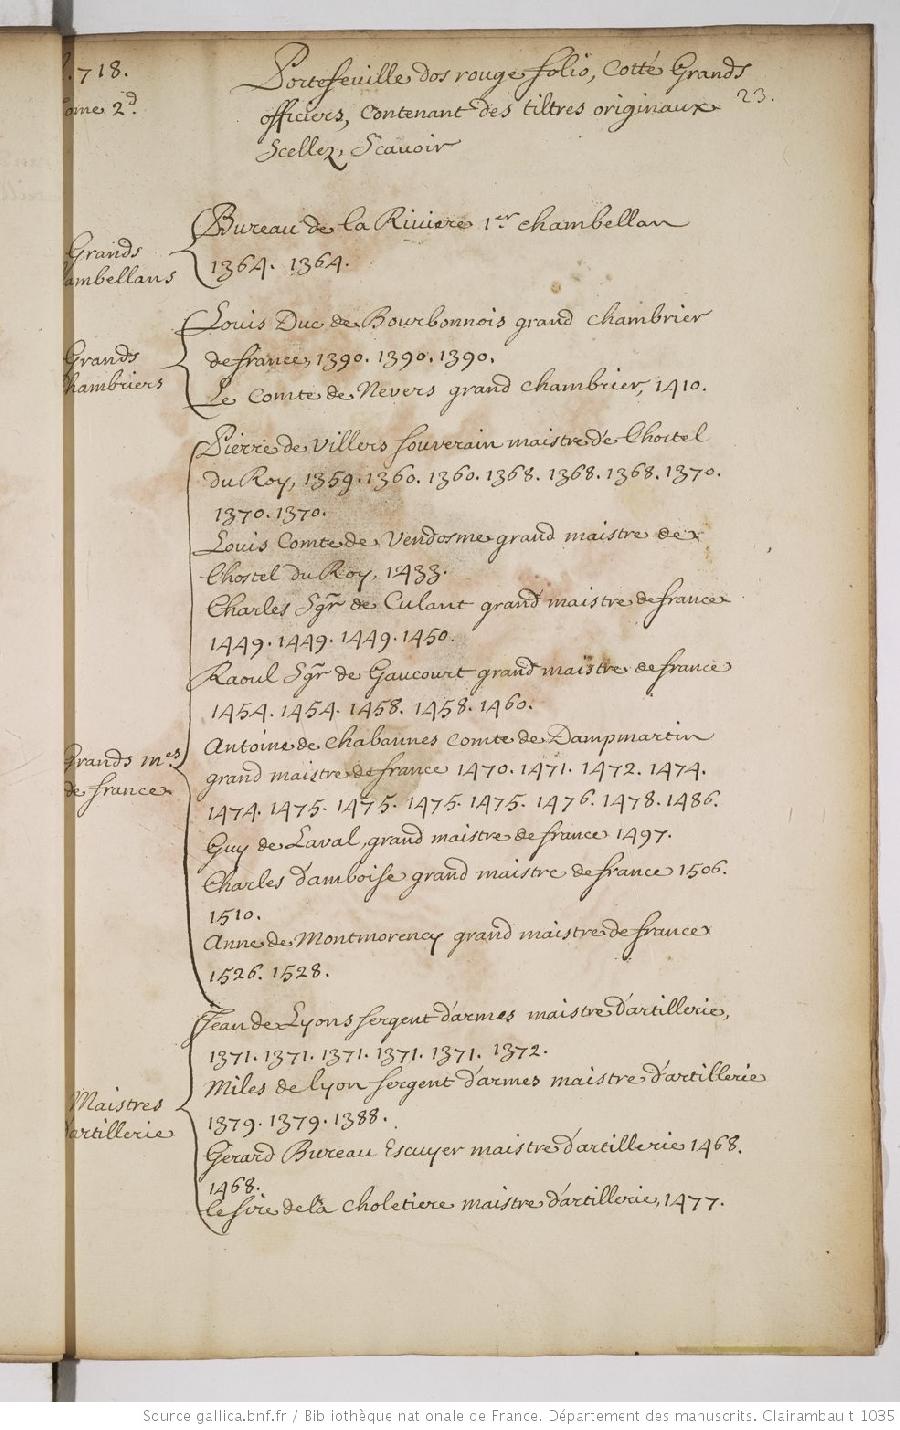 .718.
ome 2d.
23.
Portefeuille dos rouge folio, Cotté Grands
officiers, Contenant des tiltres originaux
Scellez, Scauoir
Grands
ambellans
Bureau de la Riuiere 1er chambellan
1364. 1364.
Grands
hambriers
Louis Duc de Bourbonnois grand chambrier
de france, 1390. 1390. 1390.
Le Comte de Nevers grand chambrier, 1410.
Grands mes
de france
Pierre de villers souverain maistre de l'hostel
du Roy, 1359. 1360. 1360. 1368. 1368. 1368. 1370.
1370. 1370.
Louis Comte de Vendosme grand maistre de
l'hostel du Roy, 1433.
Charles Sgr de Culant grand maistre de france
1449. 1449. 1449. 1450.
Raoul Sgr de Gaucourt grand maistre de france
1454. 1454. 1458. 1458. 1460.
Antoine de Chabannes Comte de Dampmartin
grand maistre de france 1470. 1471. 1472. 1474.
1474. 1475. 1475. 1475. 1475. 1476. 1478. 1486.
Guy de Laval, grand maistre de france 1497.
Charles d'amboise grand maistre de france 1506.
1510.
Anne de Montmorency grand maistre de france
1526. 1528.
Maistres
artillerie
Jean de Lyons sergent d'armes maistre d'artillerie,
1371. 1371. 1371. 1371. 1371. 1372.
Miles de lyon sergent d'armes maistre d'artillerie
1379. 1379. 1388.
Gerard Bureau Escuyer maistre d'artillerie 1468.
1468.
le sire de la Choletiere maistre d'artillerie, 1477.
Source gallica.bnf.fr / Bibliothèque nationale de France. Département des manuscrits. Clairambault 1035